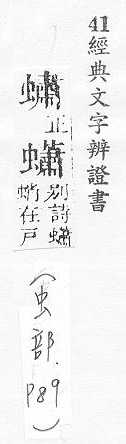 41經典文字辨證書
蠨正
蠨別詩蠨
蛸在戶
(虫部.
P89)